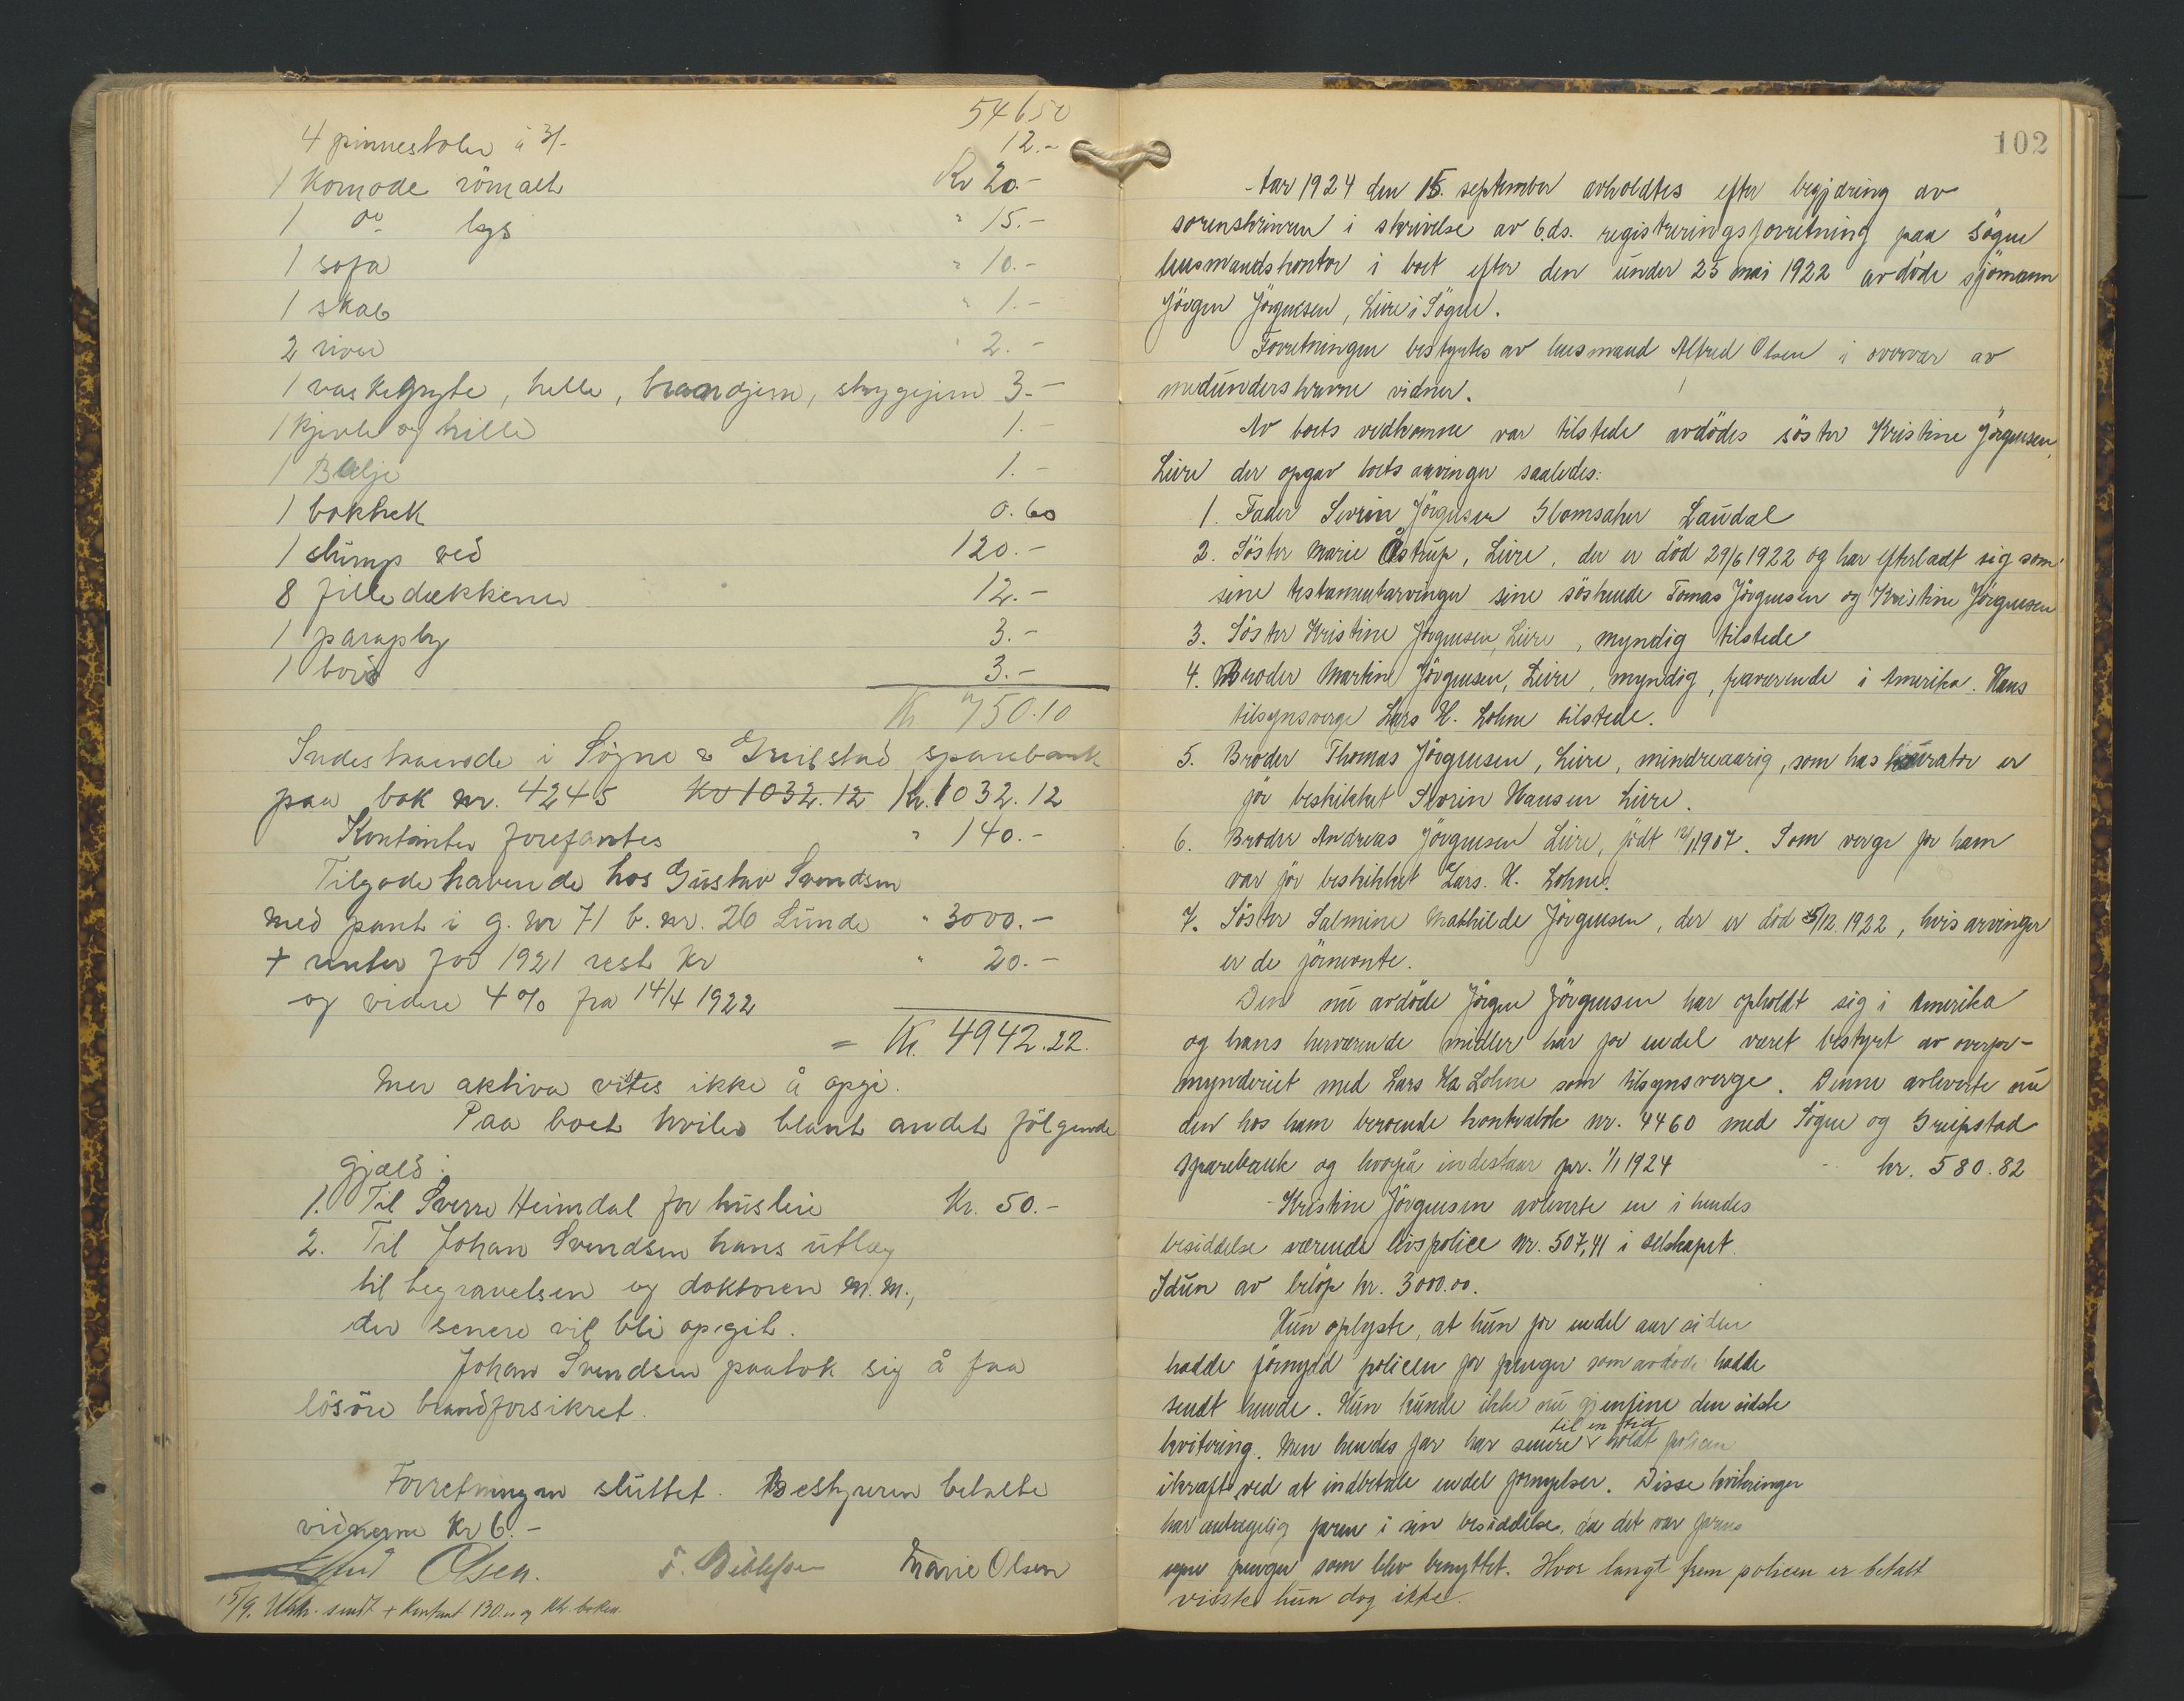 546 50
4 pinnestoler à 3/- 12.-
1 Komode römalt Kr 20.-
1 do lys " 15.-
1 sofa " 10.-
1 skab " 1.-
2 river " 2.-
1 vaskegryte, helle, brandjern, strygejern 3.-
1 kjevle og hille 1.-
1 Balje 1.-
1 bokhek 0.60
1 slump ved 120.-
8 filledekkener 12.-
1 paraply 3.-
1 bord 3.-
Kr 750.10
Indestaaende i Søgne & Greibstad sparebank
paa bok nr. 4245 Kr 1032.12 Kr. 1032.12
Kontanter forefantes " 140.-
Tilgodehavende hos Gustav Svendsen
med pant i g. nr 71 b. nr. 26 Lunde " 3000.-
+ renter for 1921 rest Kr " 20.-
og videre 4% fra 14/4 1922
= Kr. 4942.22.
Mer aktiva vites ikke å opgi.
Paa boet hviler blant andet følgende
gjæld:
1. Til Sverre Heimdal for husleie Kr. 50.-
2. Til Johan Svendsen hans utlæg
til begravelsen og doktoren m.m.,
der senere vil bli opgit.
Johan Svendsen paatok sig å faa
løsøre brandforsikret.
Forretningen sluttet. Bestyreren betalte
vidnerne Kr 6.-
Alfred Olsen. Marie Olsen
15/9. Utskr. sendt + Kontant 130.- og ktr. boken.
102
-Aar 1924 den 15. september avholdtes efter begjæring av
sorenskriveren i skrivelse av 6. ds. registreringsforretning paa Søgne
lensmandskontor i boet efter den under 25 mai 1922 avdøde sjømann
Jörgen Jörgensen, Leire i Sögne.
Forretningen bestyrtes av lensmand Alfred Olsen i overvær av
medunderskrevne vidner.
Av boets vedkomne var tilstede avdødes söster Kristine Jörgensen,
Leire der opgav boets arvinger saaledes:
1. Fader Severin Jörgensen Homsaker Laudal
2. Söster Marie Åstrup, Leire, der er död 29/6 1922 og har efterladt sig som
sine testamentarvinger sine söskende Tomas Jörgensen og Kristine Jörgensen
3. Söster Kristine Jörgensen, Leire, myndig tilstede
4. Broder Martin Jörgensen, Leire, myndig, fraværende i Amerika. Hans
tilsynsverge Lars H. Lohne tilstede.
5. Broder Thomas Jörgensen, Leire, mindreaarig, som has kurator er
för beskikket Severin Hansen Leire.
6. Broder Andreas Jörgensen Leire, födt 12/1 1907. Som verge for ham
var för beskikket Lars. H. Lohne.
7. Söster Salmine Mathilde Jörgensen, der er död 5/12. 1922, hvis arvinger
er de förnevnte.
Den nu avdöde Jörgen Jörgensen har opholdt sig i Amerika
og hans herværende midler har for endel været bestyrt av overfor-
mynderiet med Lars Ha Lohne som tilsynsverge. Denne avleverte nu
den hos ham beroende kontrabok nr. 4460 med Sögne og Greipstad
Sparebank og hvorpå indestaar pr. 1/1 1924 kr. 580.82
Kristine Jörgensen avleverte en i hendes
besiddelse værende livspolice nr. 507,41 i selskapet
Idun av belöp kr. 3000.00.
Hun oplyste, at hun for endel aar siden
hadde fornyed policen for penger som avdöde hadde
sendt hende. Hun kunde ikke nu gjenfine den sidste
kvitering. Men hendes far har senere til en tid holdt policen
ikraft ved at indbetale endel fornyelser. Disse kviteringer
har antagelig faren i sin besiddelse, da det var farens
egne penger som blev benyttet. Hvor langt frem policen er betalt
visste hun dog ikke.